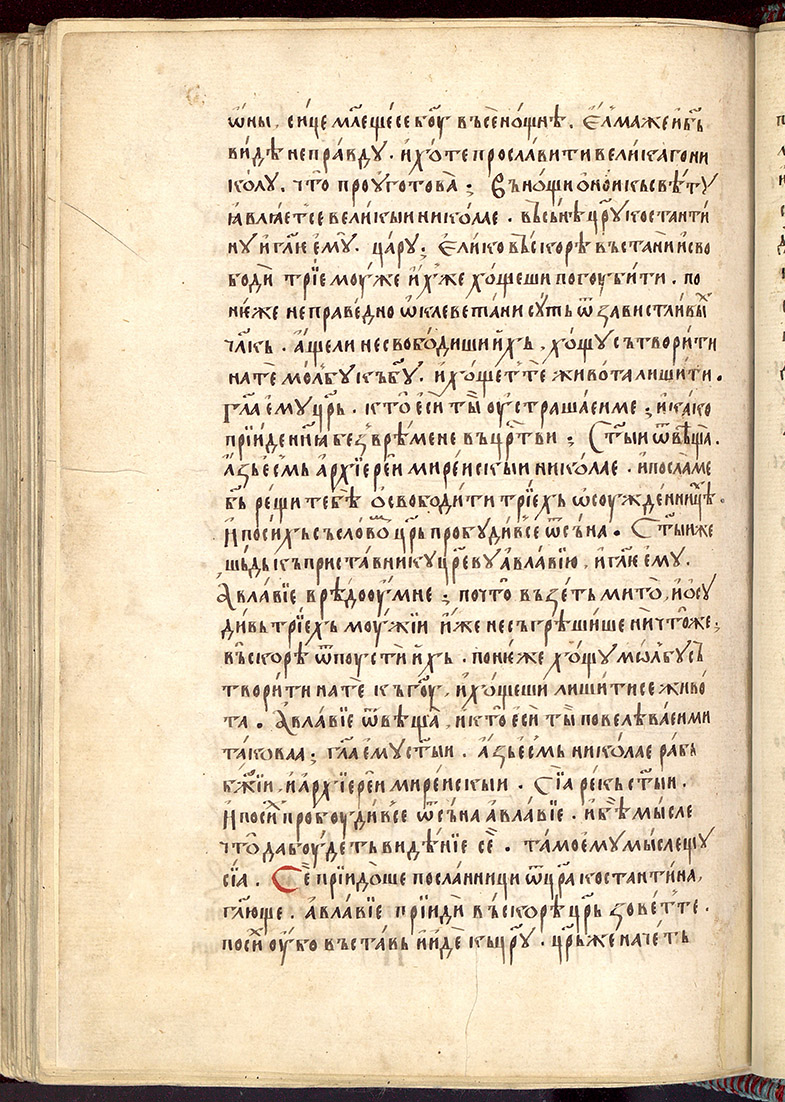 ѡ҆ны, си́це мл҃еще́се бг҃оу въсено́щнѣ. Є҆л́маже и҆ бг҃ь
видѣ̀ непра́вду. и҆ хо́те просла́вити вели́каго ни
ко́лу, что̀ проуготова̀; Въ но́щи ѻ҆но́и къ свѣ́ту
ꙗ҆влꙗ́етсе вели́кыи никѡ́лае. въ сънѣ̀ цр҃у костанти́
ну и҆ гл҃е є҆мꙋ̀. ца́ру; Є҆ли́ко въ́скорѣ въста́ни и҆ сво
бодѝ трїе моу́же и҆́хже хо́щеши погоуби́ти. по
не́же непра́ведно ѡ҆клевета́ни су́ть ѿ зави́стливыⷯ
чл҃къ. а҆́ще ли не свободи́ши и҆́хъ, хо́щу сътвори́ти
на тѐ мо́лбу къ бг҃у. и҆ хо́щет тѐ живо́та лиши́ти.
Гл҃а є҆му цр҃ь. кто̀ є҆сѝ ты̀ оу҆страша́еи ме; и҆ ка́ко
прїи́де нн҃ꙗ без вре́мене въ цр҃тви; Ст҃ыи ѿвѣща̀.
А҆́зь є҆́смь а҆рхїере́и мире́искыи никѡ́лае. и҆ посла́ ме
бг҃ь ре́щи тебѣ̀ ѻ҆свободи́ти трїе́хь ѡ҆соуж҆де́нникѣ.
И҆ по си́хь съ слово́ⷨ цр҃ь пробуди́всѐ ѿ съна̀. Ст҃ыи же
шь́дь къ приста́внику цр҃еву а҆вла́вїю, и҆ гл҃е є҆му.
А҆вла́вїе врѣдооу́мне; почто̀ възе́ть мито̀, и҆ ѻ҆су
ди́вь трїе́хъ моу́жїи и҆́же не съгрѣши́ше ни́чтоже;
въ́скорѣ ѿпоу́сти и҆́хь. поне́же хо́щу мѡ́лбу съ
твори́ти на тѐ къ бг҃оу, и҆ хо́щеши лиши́тисе живо́
та. А҆вла́вїе ѿвѣща̀, и҆ кто̀ є҆сѝ ты̀ повелѣва́еи ми
тако́ваа; гл҃а є҆му ст҃ыи. а҆́зь є҆́смь никѡ́лае ра́бь
бж҃їи, и҆ а҆рхїере́и мире́искыи. Сїа̀ ре́къ ст҃ыи.
И҆ по сиⷯ пробоуди́всѐ ѿ съна̀ а҆вла́вїе. и҆ бѣ̀ мы́сле
что̀ да боу́деть видѣ́нїе сѐ. та́мо є҆му мы́слещу
сїа̀. Сѐ прїидо́ше посла́нници ѿ цр҃а костанти́на,
гл҃юще. а҆вла́вїе прїидѝ въ́скорѣ цр҃ь зове́т те.
по сиⷯ оу҆́бо въста́вь и҆ и҆́де къ цр҃у. цр҃ь же наче́ть